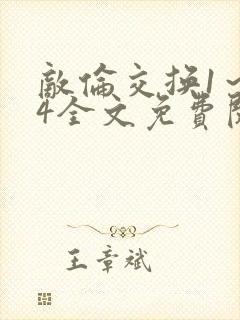 敵倫交換1～
4全文免費閱
王章斌